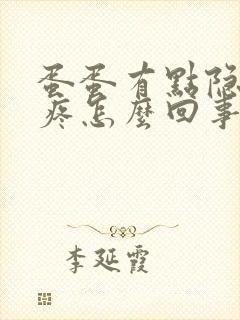 蛋蛋有點隐
疼怎麽回事
李延霞